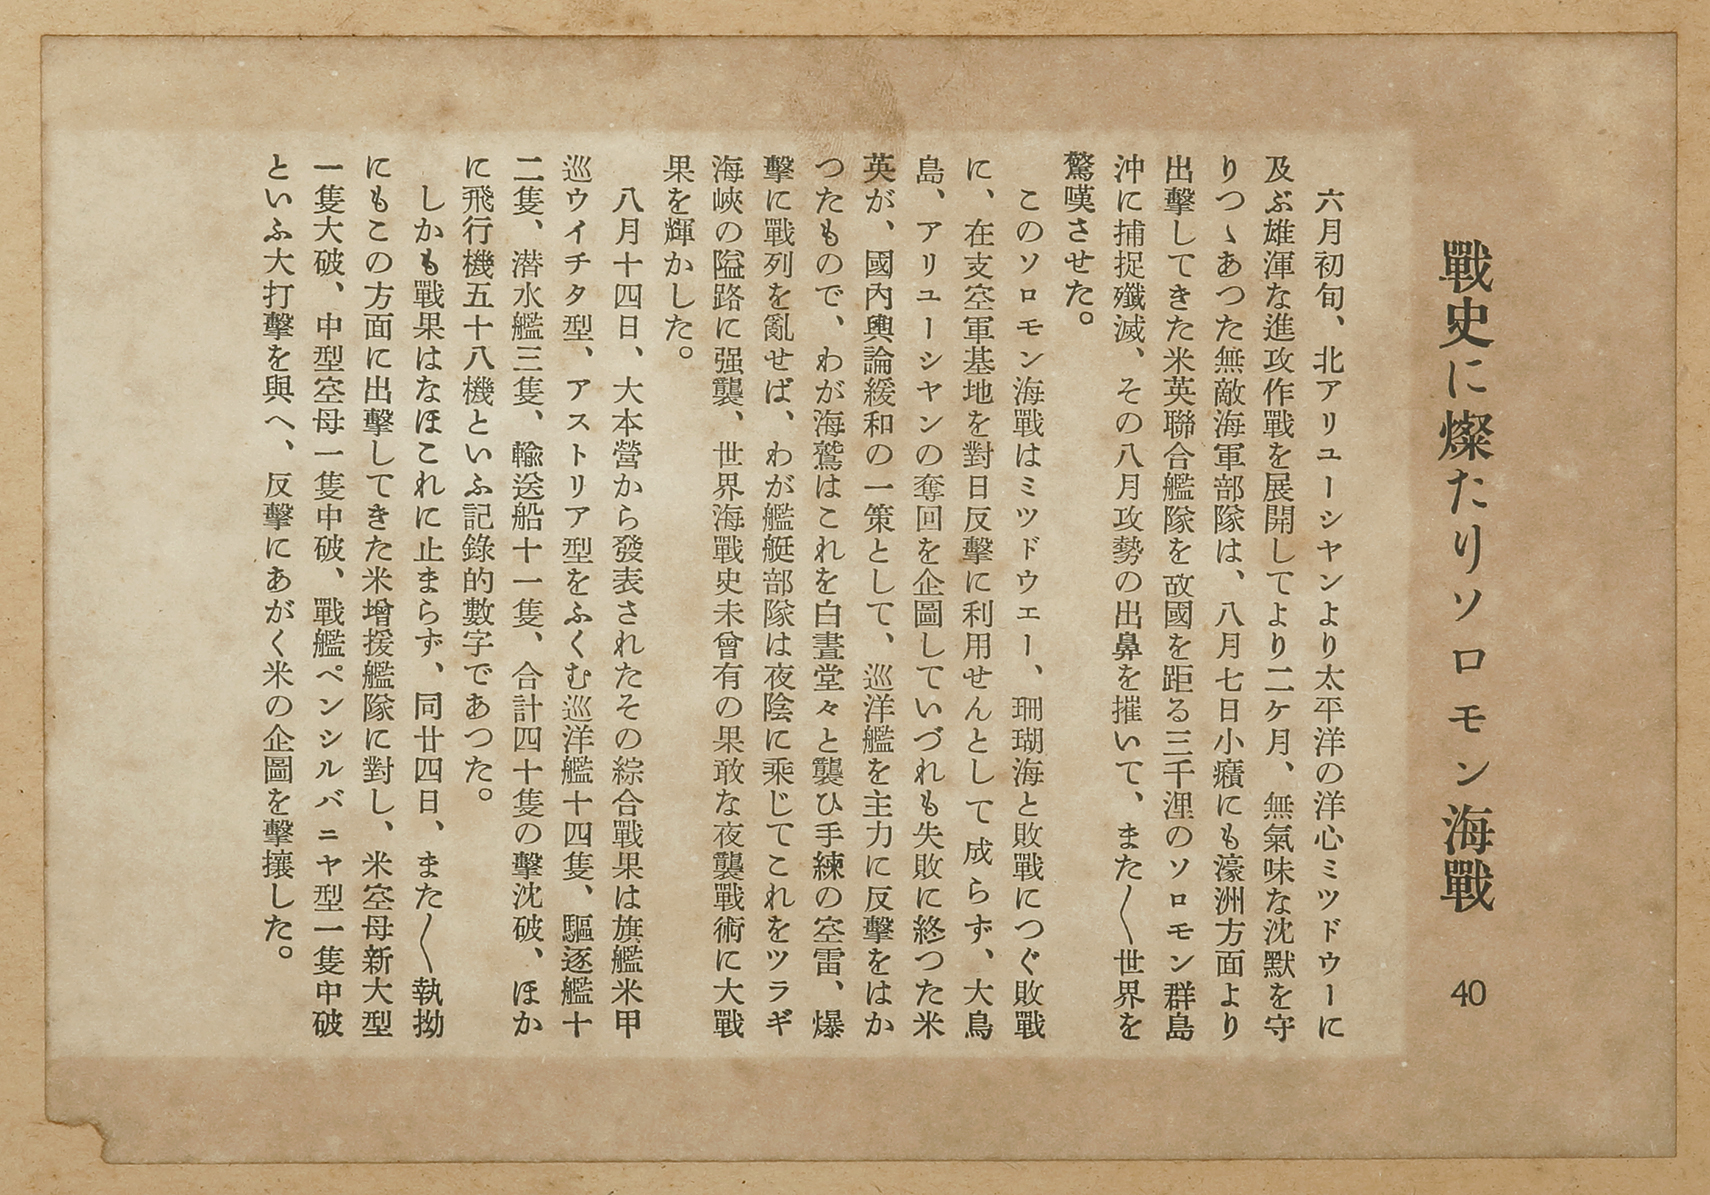 戰史に燦たりソロモン海戰 40
六月初旬、北アリユーシヤンより太平洋の洋心ミツドウーに
及ぶ雄渾な進攻作戰を展開してより二ケ月、無氣味な沈默を守
りつゝあつた無敵海軍部隊は、八月七日小癪にも濠洲方面より
出擊してきた米英聯合艦隊を故國を距る三千浬のソロモン群島
沖に捕捉殲滅、その八月攻勢の出鼻を摧いて、また〱世界を
驚嘆させた。
このソロモン海戰はミツドウエー、珊瑚海と敗戰につぐ敗戰
に、在支空軍基地を對日反擊に利用せんとして成らず、大鳥
島、アリユーシヤンの奪回を企圖していづれも失敗に終つた米
英が、國內輿論緩和の一策として、巡洋艦を主力に反擊をはか
つたもので、わが海鷲はこれを白晝堂々と襲ひ手練の空雷、爆
擊に戰列を亂せば、わが艦艇部隊は夜陰に乘じてこれをツラギ
海峽の隘路に强襲、世界海戰史未曾有の果敢な夜襲戰術に大戰
果を輝かした。
八月十四日、大本營から發表されたその綜合戰果は旗艦米甲
巡ウイチタ型、アストリア型をふくむ巡洋艦十四隻、驅逐艦十
二隻、潜水艦三隻、輸送船十一隻、合計四十隻の擊沈破、ほか
に飛行機五十八機といふ記錄的數字であつた。
しかも戰果はなほこれに止まらず、同廿四日、また〱執拗
にもこの方面に出擊してきた米增援艦隊に對し、米空母新大型
一隻大破、中型空母一隻中破、戰艦ペンシルバニヤ型一隻中破
といふ大打擊を與へ、反擊にあがく米の企圖を擊攘した。